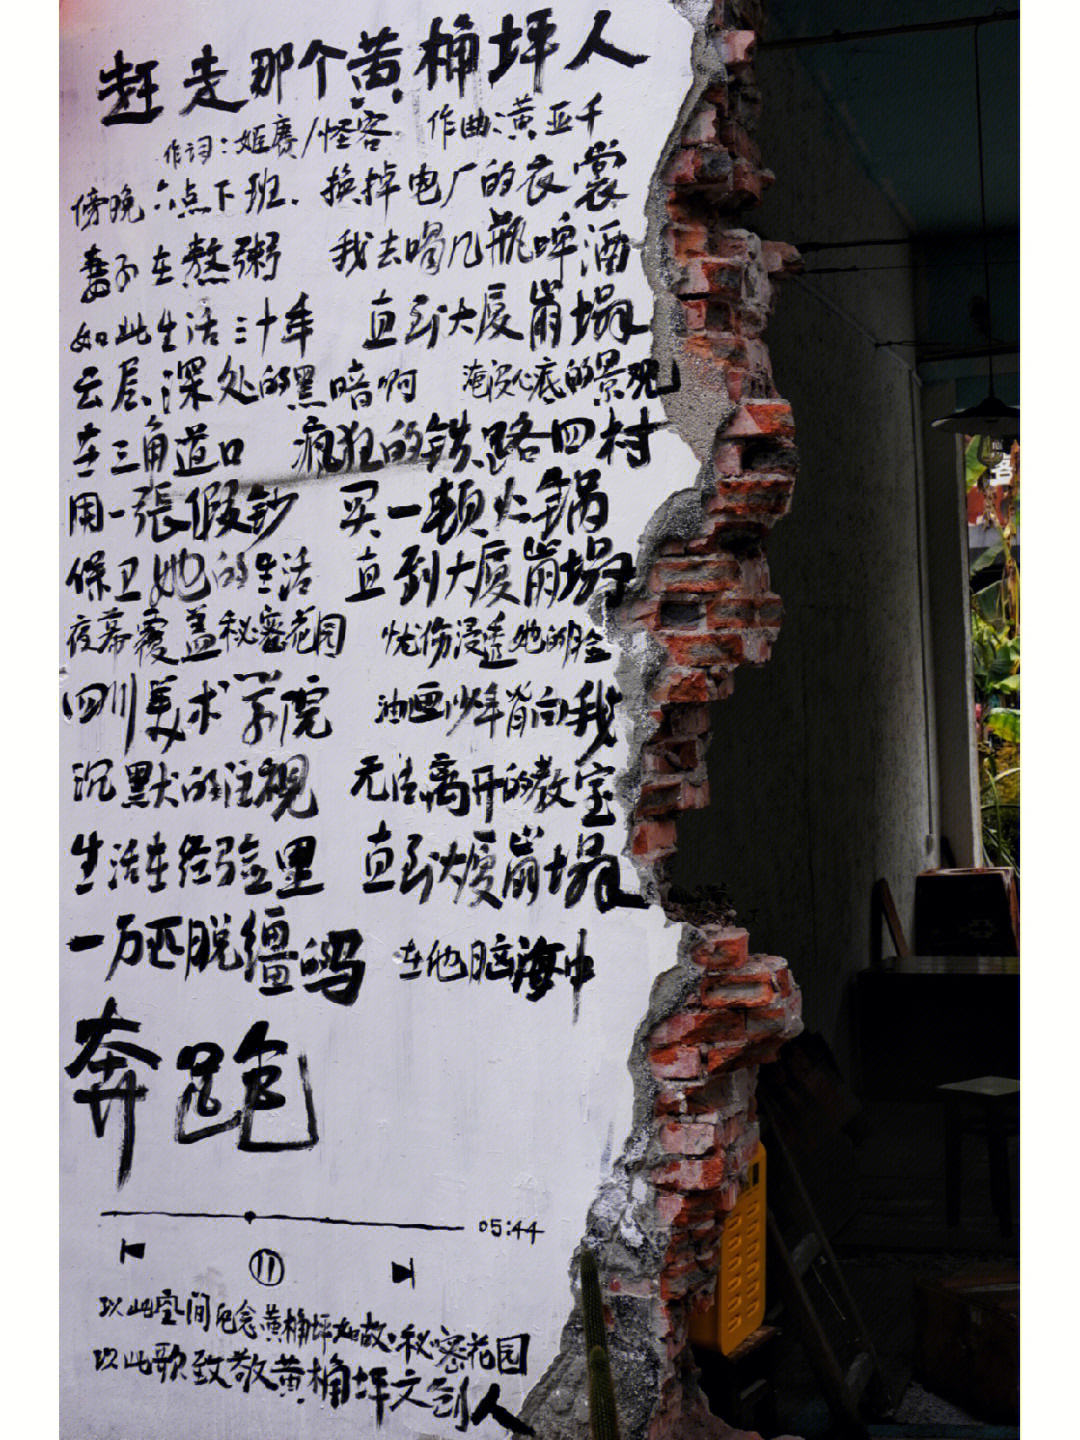 赶走那个黄桷坪人
作词：姬赓/怪客 作曲：黄亚千
傍晚六点下班. 换掉电厂的衣裳
妻子在熬粥 我去喝几瓶啤酒
如此生活三十年 直到大厦崩塌
云层深处的黑暗啊 淹没心底的景观
在三角道口 疯狂的铁路四村
用一張假钞 买一顿火锅
保卫她的生活 直到大厦崩塌
夜幕覆盖秘密花园 忧伤浸透她的脸
四川美术学院 油画少年背向我
沉默的注视 无法离开的教室
生活在经验里 直到大厦崩塌
一万匹脱缰的马 在他脑海中
奔跑
05:44
以此空间纪念黄桷坪如故·秘密花园
以此歌致敬黄桷坪文创人